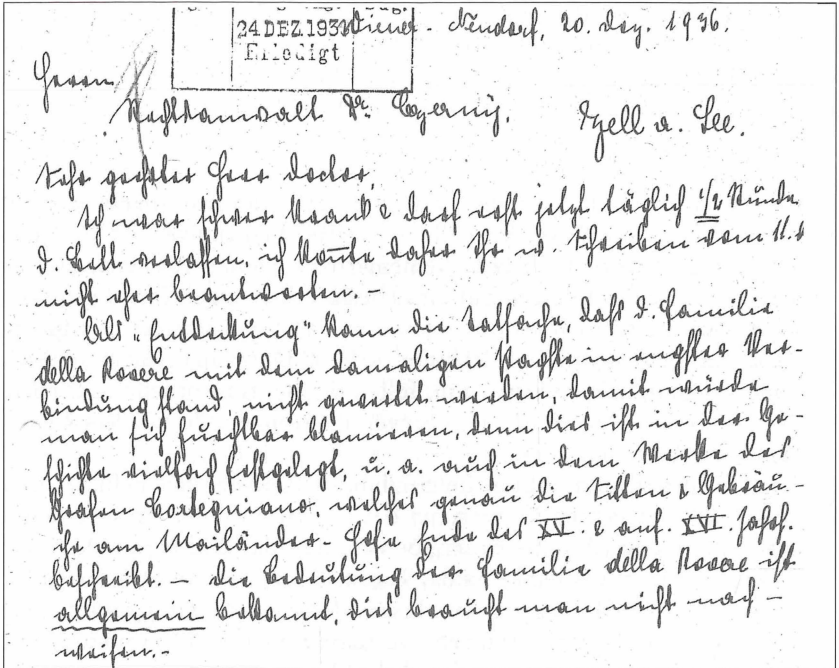 24 DEZ. 1936
Erledigt
Wiener-Neudorf, 20. Dez. 1936.
Herrn
Rechtsanwalt Dr. Czerny. Zell a. See.
Sehr geehrter Herr Doctor,
Ich war schwer krank & darf erst jetzt täglich 1/2 Stunde
d. Bett verlassen, ich kon̅te daher Ihr w. Schreiben vom 11. d
nicht eher beantworten. -
Als "Entdeckung" kann die Tatsache, daß d. Familie
della Rovere mit dem damaligen Papste in engster Ver-
bindung stand, nicht gewertet werden, damit würde
man sich furchtbar blamieren, denn dies ist in der Ge-
schichte vielfach festgelegt, u. a. auch in dem Werke des
Grafen Cortegniano, welches genau die Sitten & Gebräu-
che am Mailänder-Hofe Ende des XV. & anf. XVI. Jahrh.
beschreibt. - Die Bedeutung der Familie della Rovere ist
allgemein bekannt, dies braucht man nicht nach-
weisen. -